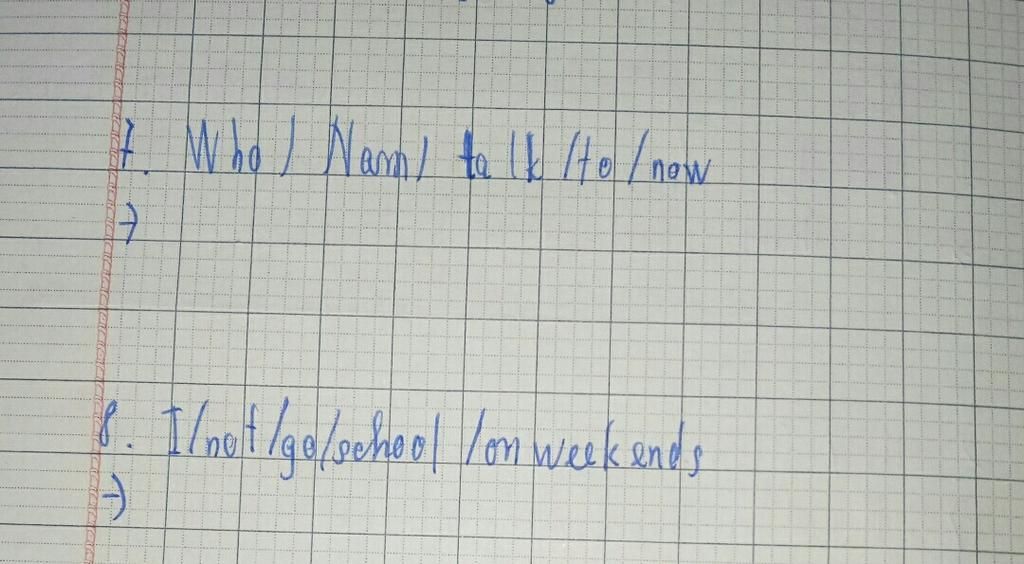 7. Who / Nam / talk / to / now
→
8. I / not / go / school / on weekends
→